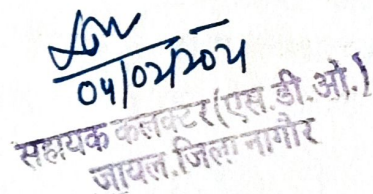 04/02/2021
सहायक कलक्टर (एस.डी.ओ.)
जायल, जिला नागौर